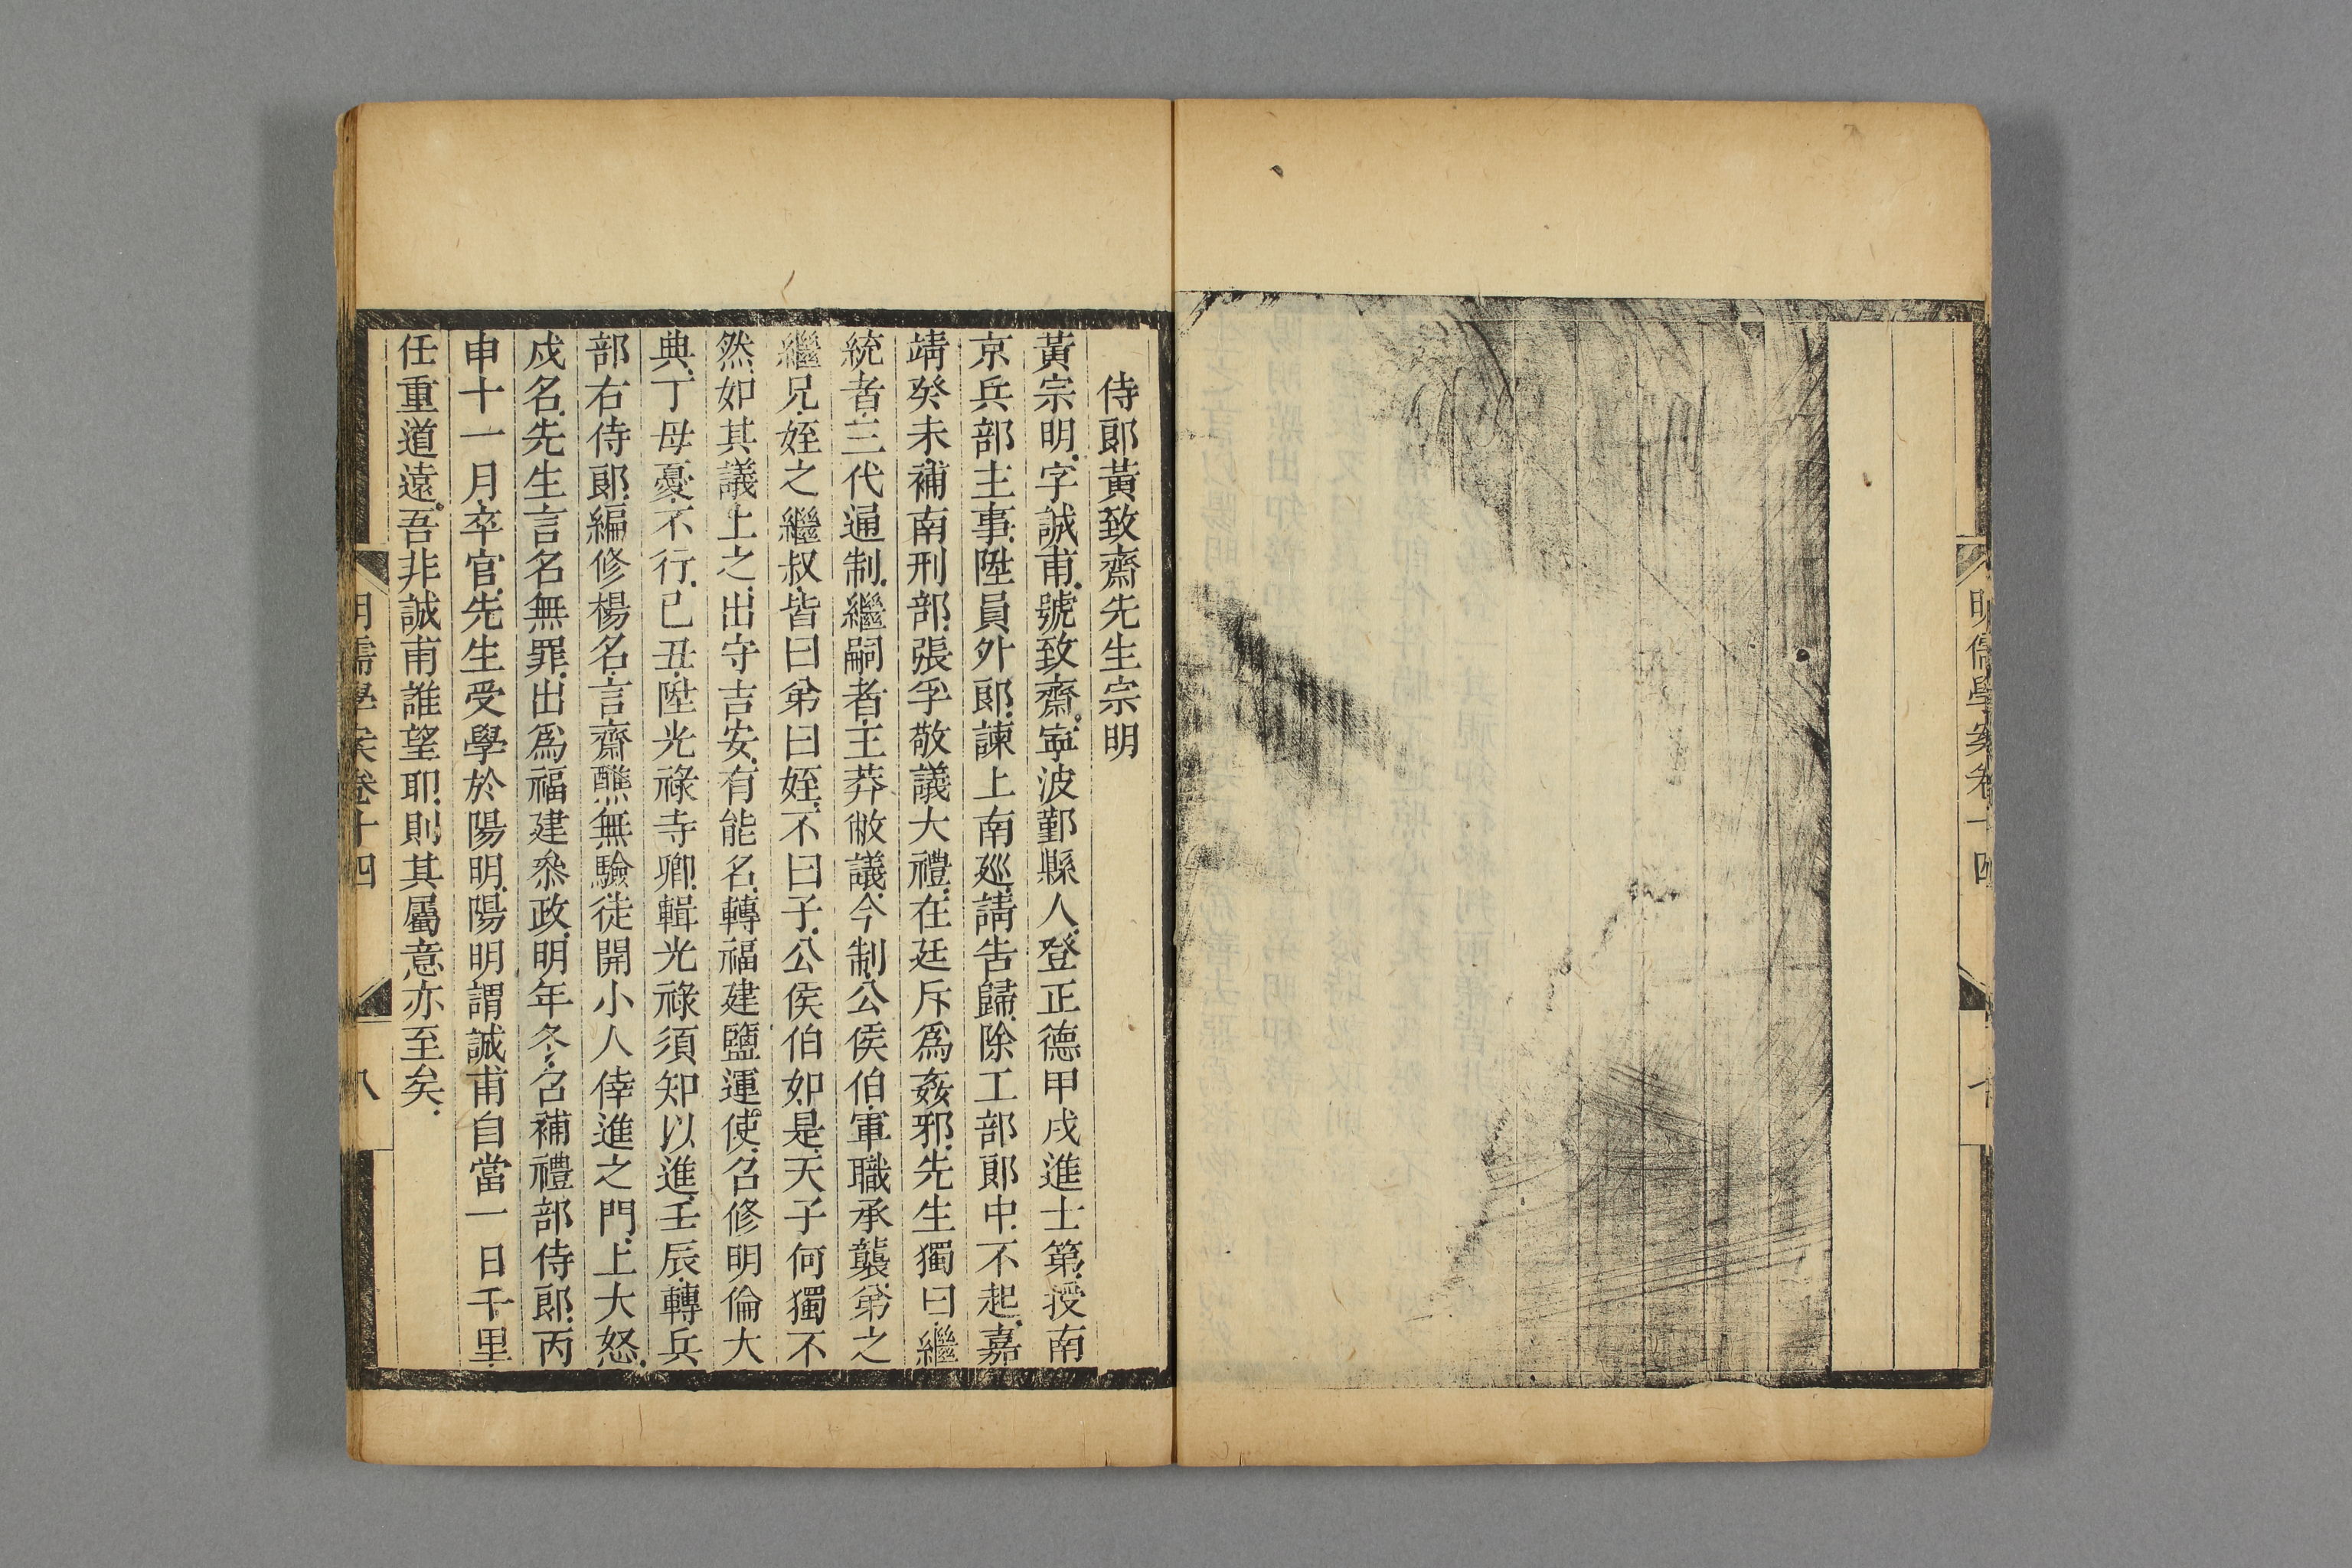 明儒學案卷十四
侍郞黃致齋先生宗明
黃宗明字誠甫號致齋寧波鄞縣人登正德甲戌進士第授南
京兵部主事陞員外郞諫上南廵請告歸除工部郞中不起嘉
靖癸未補南刑部張孚敬議大禮在廷斥爲姦邪先生獨曰繼
統者三代通制繼嗣者王莽敝議今制公侯伯軍職承襲弟之
繼兄姪之繼叔皆曰弟曰姪不曰子公侯伯如是天子何獨不
然如其議上之出守吉安有能名轉福建鹽運使召修明倫大
典丁母憂不行已丑陞光祿寺卿輯光祿須知以進壬辰轉兵
部右侍郞編修楊名言齋醮無驗徒開小人倖進之門上大怒
戍名先生言名無罪出爲福建叅政明年冬召補禮部侍郞丙
申十一月卒官先生受學於陽明陽明謂誠甫自當一日千里
任重道遠吾非誠甫誰望耶則其屬意亦至矣
明儒學案卷十四
八